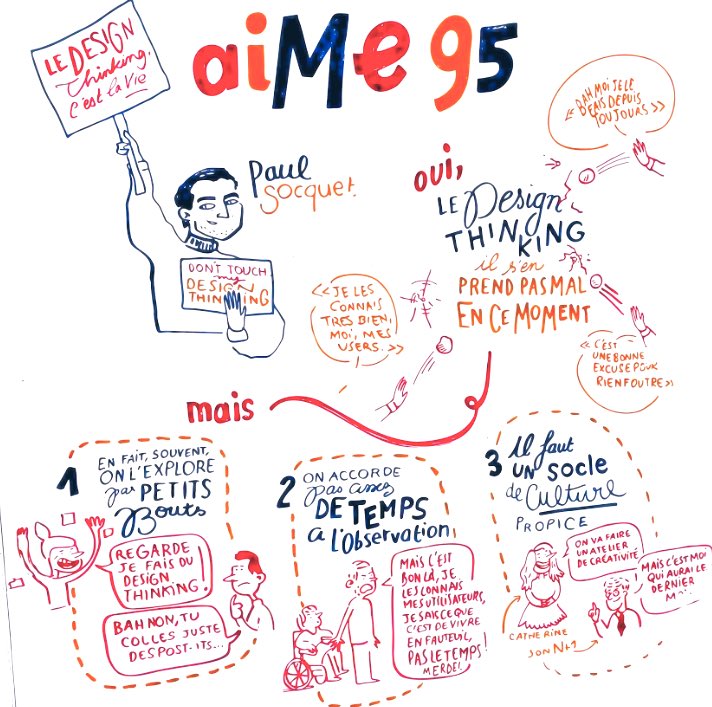 LE DESIGN
Thinking,
C'est la Vie
aiMe 95
Paul
Socquet.
DON'T TOUCH
my
DESIGN
THINKING
oui,
LE Design
THINKING
il s'en
PREND PAS MAL
EN CE MOMENT
« BAH MOI JE LE
FAIS DEPUIS
TOUJOURS »
« JE LES
CONNAIS
TRES BIEN,
MOI, MES
USERS. »
« C'EST
UNE BONNE
EXCUSE POUR
RIEN FOUTRE »
mais
1
EN FAIT, SOUVENT,
ON L'EXPLORE
par PETITS
Bouts
REGARDE
JE FAIS DU
DESIGN
THINKING!
BAH NON, TU
COLLES JUSTE
DES POST-ITS...
2
ON ACCORDE
pas assez
DE TEMPS
a l'Observation
MAIS C'EST
BON LÀ, JE
LES CONNAIS
MES UTILISATEURS,
JE SAIS CE QUE
C'EST DE VIVRE
EN FAUTEUIL,
PAS LE TEMPS !
MERDE!
3
Il faut
UN SOCLE
de Culture
PROPICE
ON VA FAIRE
UN ATELIER
DE CRÉATIVITÉ
MAIS C'EST MOI
QUI AURAI LE
DERNIER
CATHERINE
SON N+1